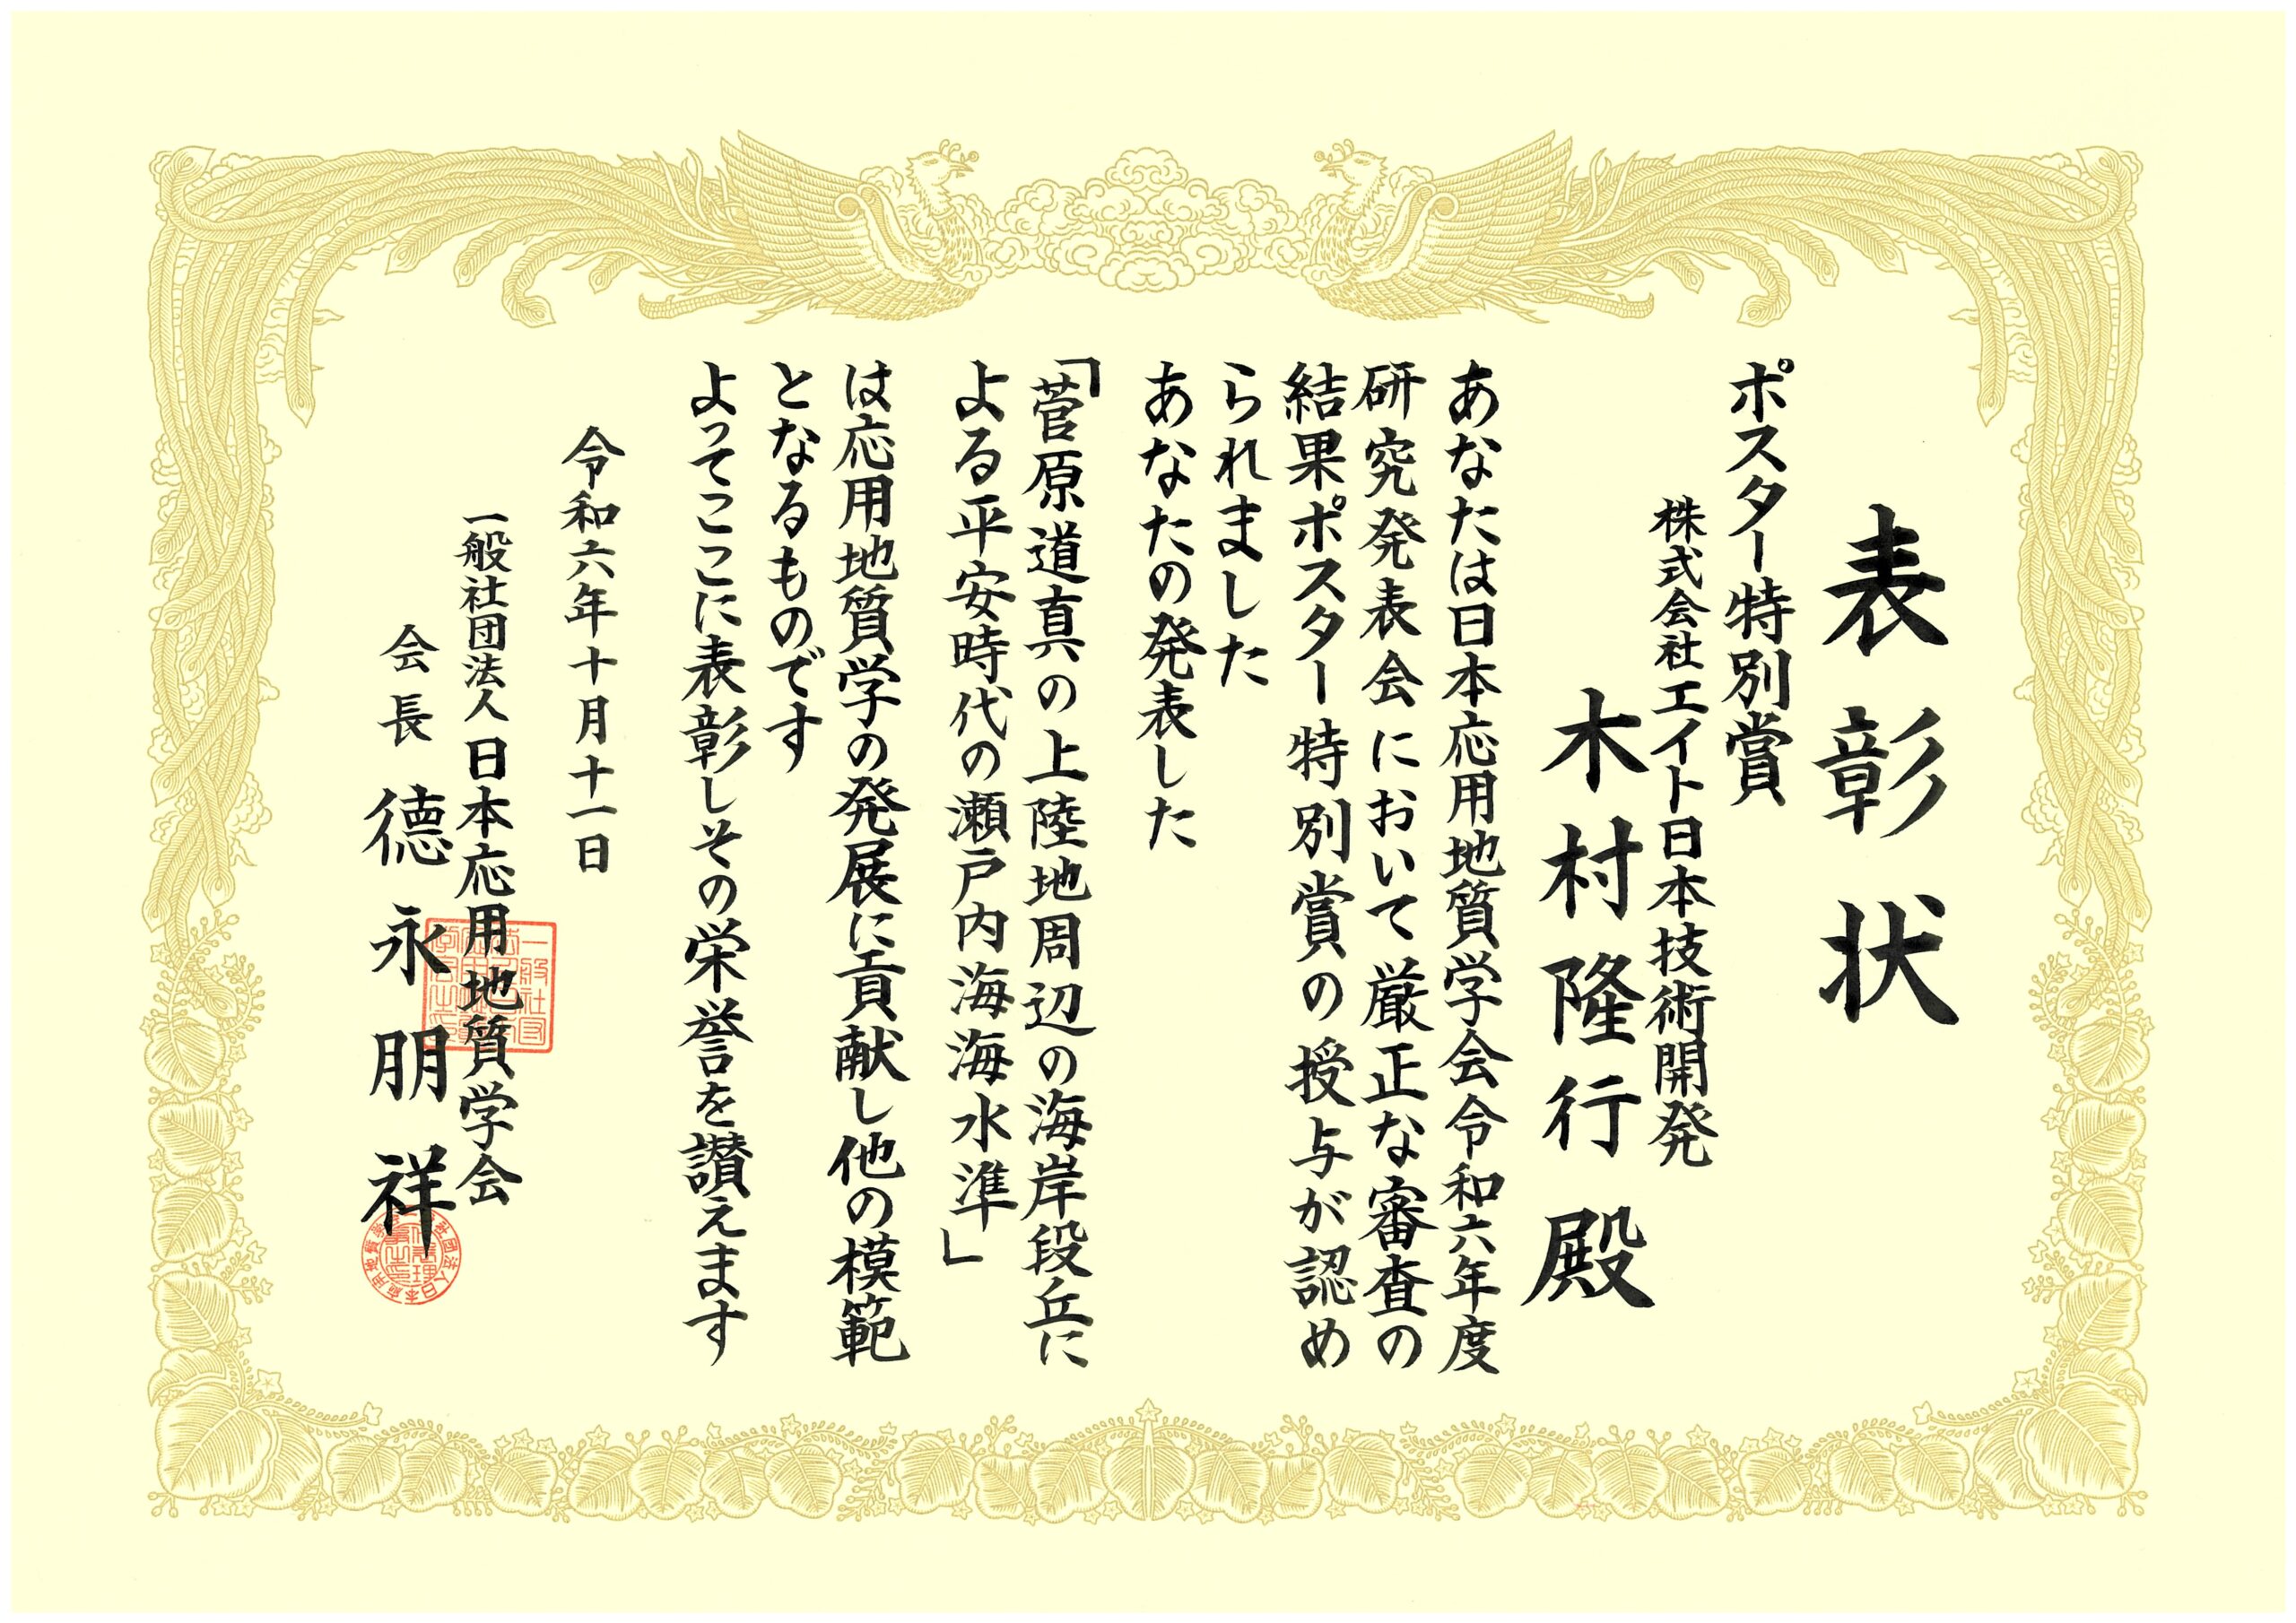 表彰状
ポスター特別賞
株式会社エイト日本技術開発
木村隆行殿
あなたは日本応用地質学会令和六年度
研究発表会において厳正な審査の
結果ポスター特別賞の授与が認め
られました
あなたの発表した
「菅原道真の上陸地周辺の海岸段丘に
よる平安時代の瀬戸内海海水準」
は応用地質学の発展に貢献し他の模範
となるものです
よってここに表彰しその栄誉を讃えます
令和六年十月十一日
一般社団法人日本応用地質学会
会長 徳永朋祥